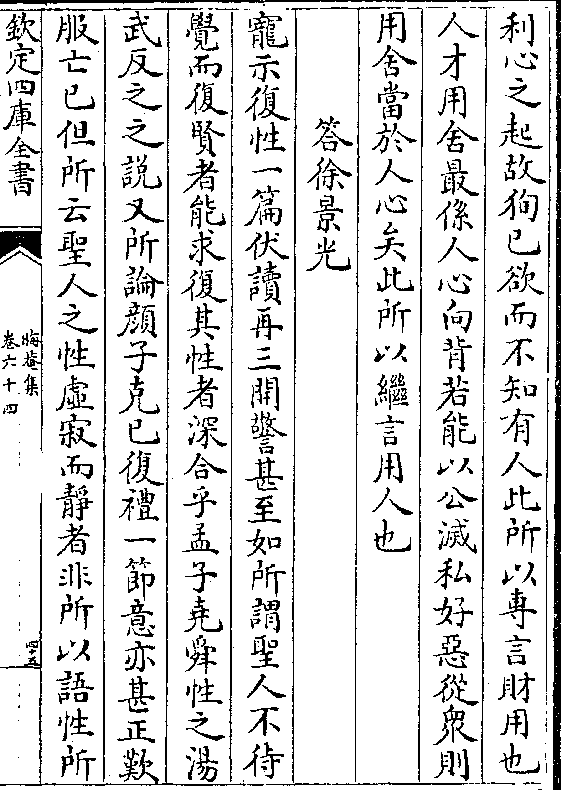 利心之起故狥已欲而不知有人此所以專言財用也
人才用舍最係人心向背若能以公滅私好惡從衆則
用舍當於人心矣此所以繼言用人也
答徐景光
寵示復性一篇伏讀再三開警甚至如所謂聖人不待
覺而復賢者能求復其性者深合乎孟子堯舜性之湯
武反之之說又所論顔子克已復禮一節意亦甚正歎
服亡已但所云聖人之性虛寂而靜者非所以語性所
欽定四庫全書
晦菴集
卷六十四
四十五